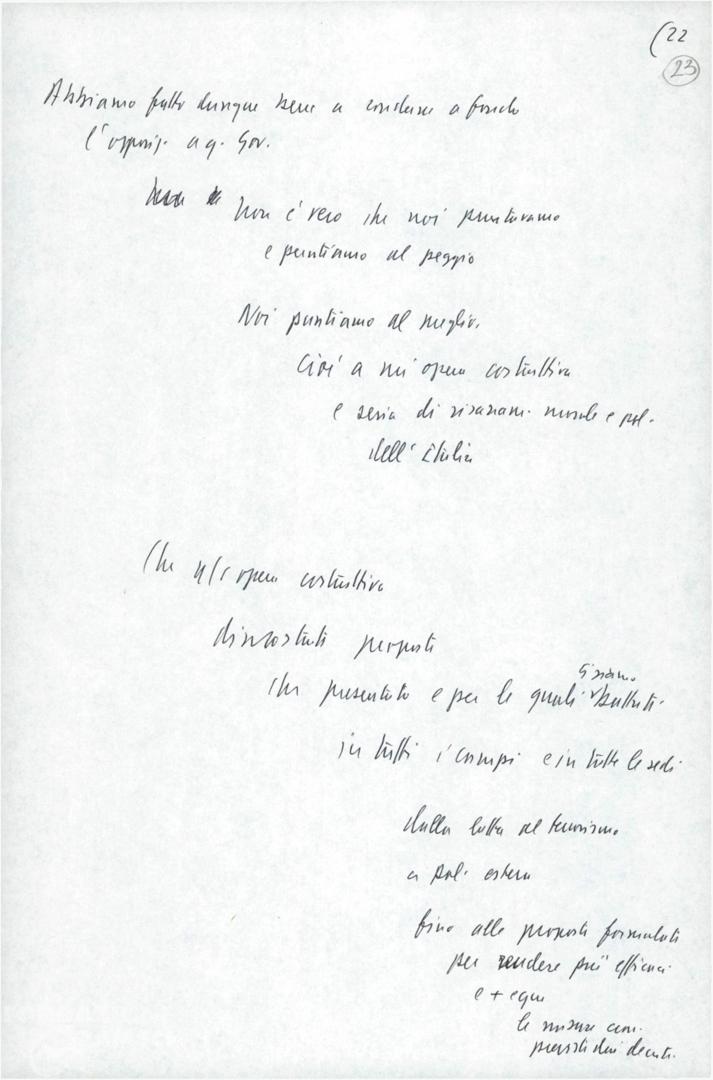 (22
23
Abbiamo fatto dunque bene a condurre a fondo
l'opposiz. a q. Gov.
Non è vero che noi puntavamo
e puntiamo al peggio
Noi puntiamo al meglio.
Cioè a un'opera costruttiva
e seria di risanam. morale e pol.
dell'Italia
Che opera costruttiva
dimostrati proposte
che presentato e per le quali
ci siamo
battuti.
in tutti i campi e in tutte le sedi
dalla lotta al terrorismo
a pol. estera
fino alle proposte formulate
per rendere più efficaci
e + eque
le misure
previste dai decreti.